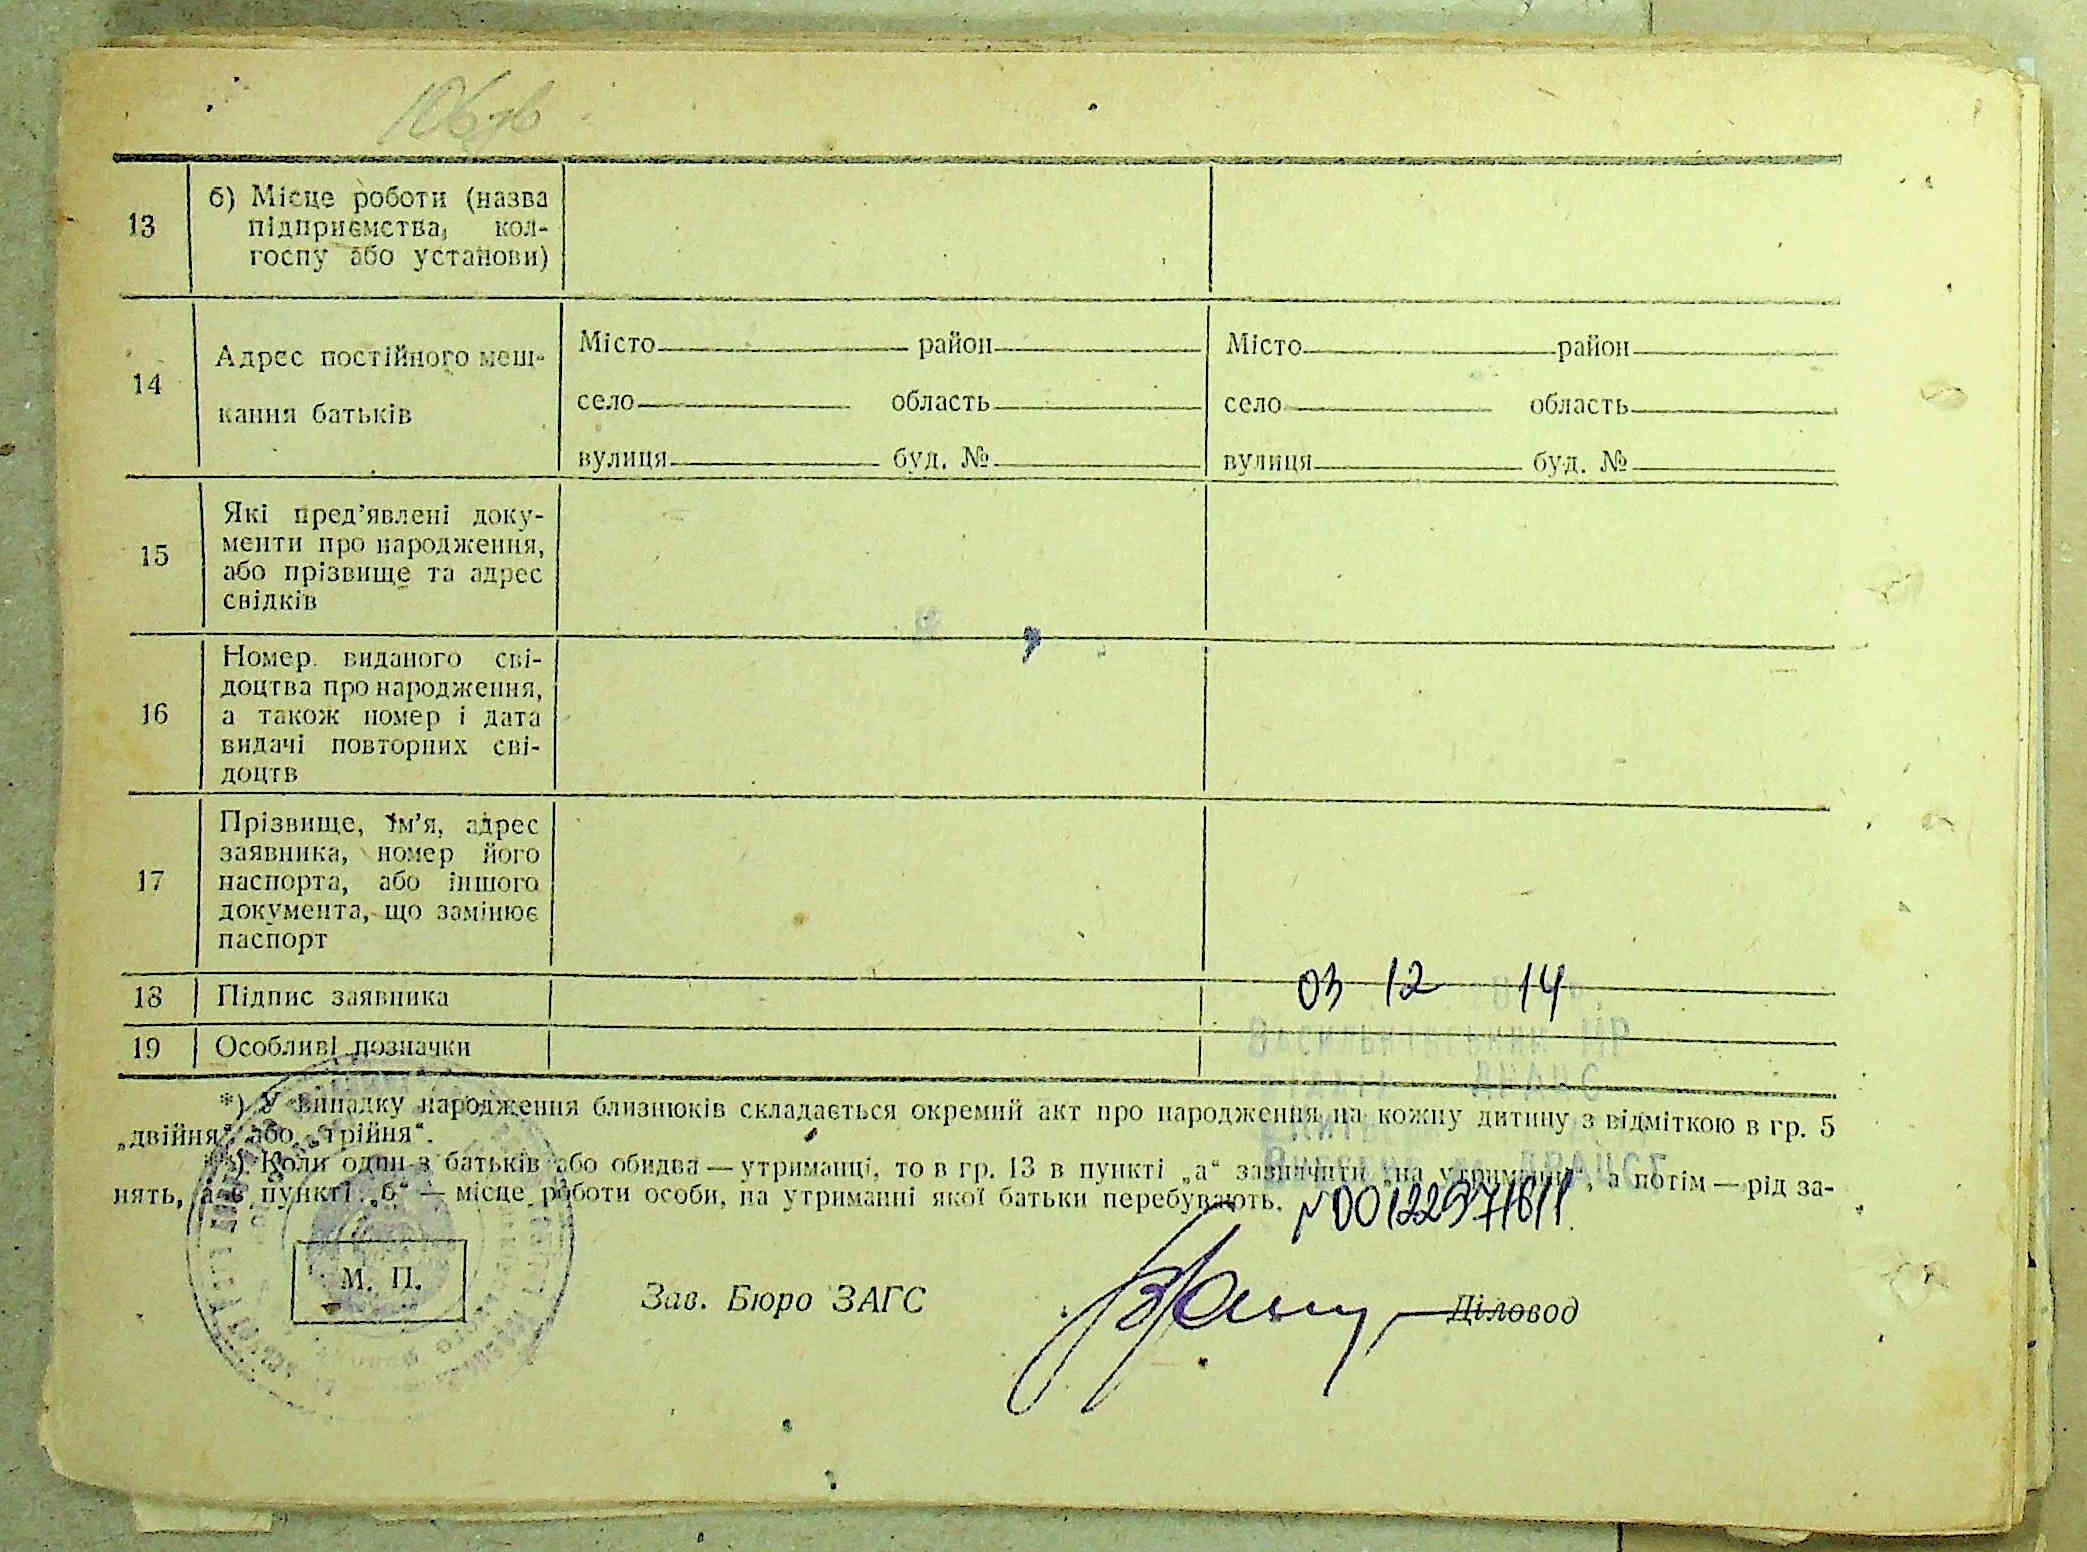 13
б) Місце роботи (назва
підприємства, кол-
госпу або установи)
14
Адрес постійного меш-
кання батьків
Місто район
село область
вулиця буд. №
Місто район
село область
вулиця буд. №
15
Які пред’явлені доку-
менти про народження,
або прізвище та адрес
свідків
16
Номер виданого сві-
доцтва про народження,
а також номер і дата
видачі повторних сві-
доцтв
17
Прізвище, ім’я, адрес
заявника, номер його
паспорта, або іншого
документа, що замінює
паспорт
18 Підпис заявника
03 12 14
19 Особливі позначки
ДРАЦС
*) У випадку народження близнюків складається окремий акт про народження на кожну дитину з відміткою в гр. 5
„двійня“ або „трійня“.
**) Коли один з батьків або обидва — утриманці, то в гр. 13 в пункті „а“ зазначити „на утриманні“, а потім — рід за-
нять, а в пункті „б“ — місце роботи особи, на утриманні якої батьки перебувають.
М. П.
Зав. Бюро ЗАГС
Діловод